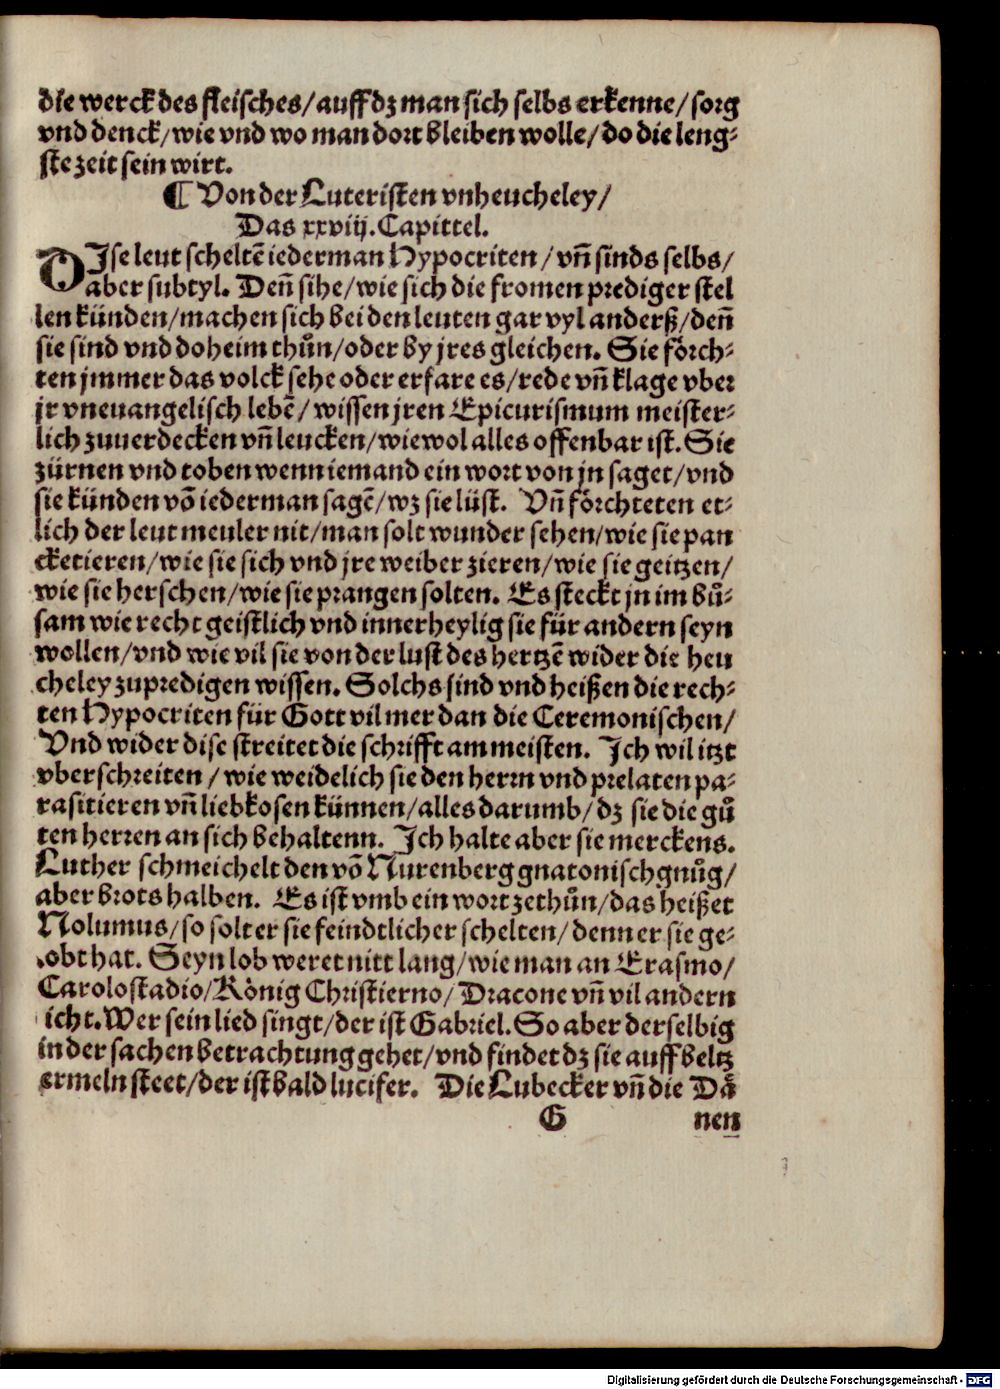 die werck des fleisches/ auff dz man sich selbs erkenne/ sorg
vnd denck/ wie vnd wo man dort bleiben wolle/ do die leng-
ste zeit sein wirt.
¶ Von der Luteristen vnheucheley/
Das xxviij. Capittel.
DIse leut scheltē iederman Hypocriten/ vn̄ sinds selbs/
aber subtyl. Den̄ sihe/ wie sich die fromen prediger stel
len künden/ machen sich bei den leuten gar vyl anderß/ den̄
sie sind vnd doheim thůn/ oder by jres gleichen. Sie förch-
ten jmmer das volck sehe oder erfare es/ rede vn̄ klage vber
jr vneuangelisch lebē/ wissen jren Epicurismum meister-
lich zuuerdecken vn̄ leucken/ wiewol alles offenbar ist. Sie
zürnen vnd toben wenn iemand ein wort von jn saget/ vnd
sie künden vō iederman sagē/ wz sie lüst. Vn̄ förchteten et-
lich der leut meuler nit/ man solt wunder sehen/ wie sie pan
cketieren/ wie sie sich vnd jre weiber zieren/ wie sie geitzen/
wie sie herschen/ wie sie prangen solten. Es steckt jn im bů-
sam wie recht geistlich vnd innerheylig sie für andern seyn
wollen/ vnd wie vil sie von der lust des hertzē wider die heu
cheley zupredigen wissen. Solchs sind vnd heißen die rech-
ten Hypocriten für Gott vil mer dan die Ceremonischen/
Vnd wider dise streitet die schrifft am meisten. Ich wil itzt
vberschreiten/ wie weidelich sie den herrn vnd prelaten pa-
rasitieren vn̄ liebkosen künnen/ alles darumb/ dz sie die gů
ten herren an sich behaltenn. Ich halte aber sie merckens.
Luther schmeichelt den vō Nurenberg gnatonisch gnůg/
aber brots halben. Es ist vmb ein wort zethůn/ das heißet
Nolumus/ so solt er sie feindtlicher schelten/ denn er sie ge-
obt hat. Seyn lob weret nitt lang/ wie man an Erasmo/
Carolostadio/ König Christierno/ Dracone vn̄ vil andern
icht. Wer sein lied singt/ der ist Gabriel. So aber derselbig
in der sachen betrachtung gehet/ vnd findet dz sie auff beltz
ermeln steet/ der ist bald lucifer. Die Lubecker vn̄ die Dä
G nen
Digitalisierung gefördert durch die Deutsche Forschungsgemeinschaft - DFG